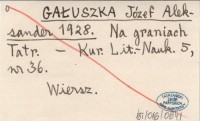 GAŁUSZKA Józef Alek-
sander 1928. Na graniach
Tatr. — Kur. Lit.-Nauk. 5,
nr 36.
Wiersz.